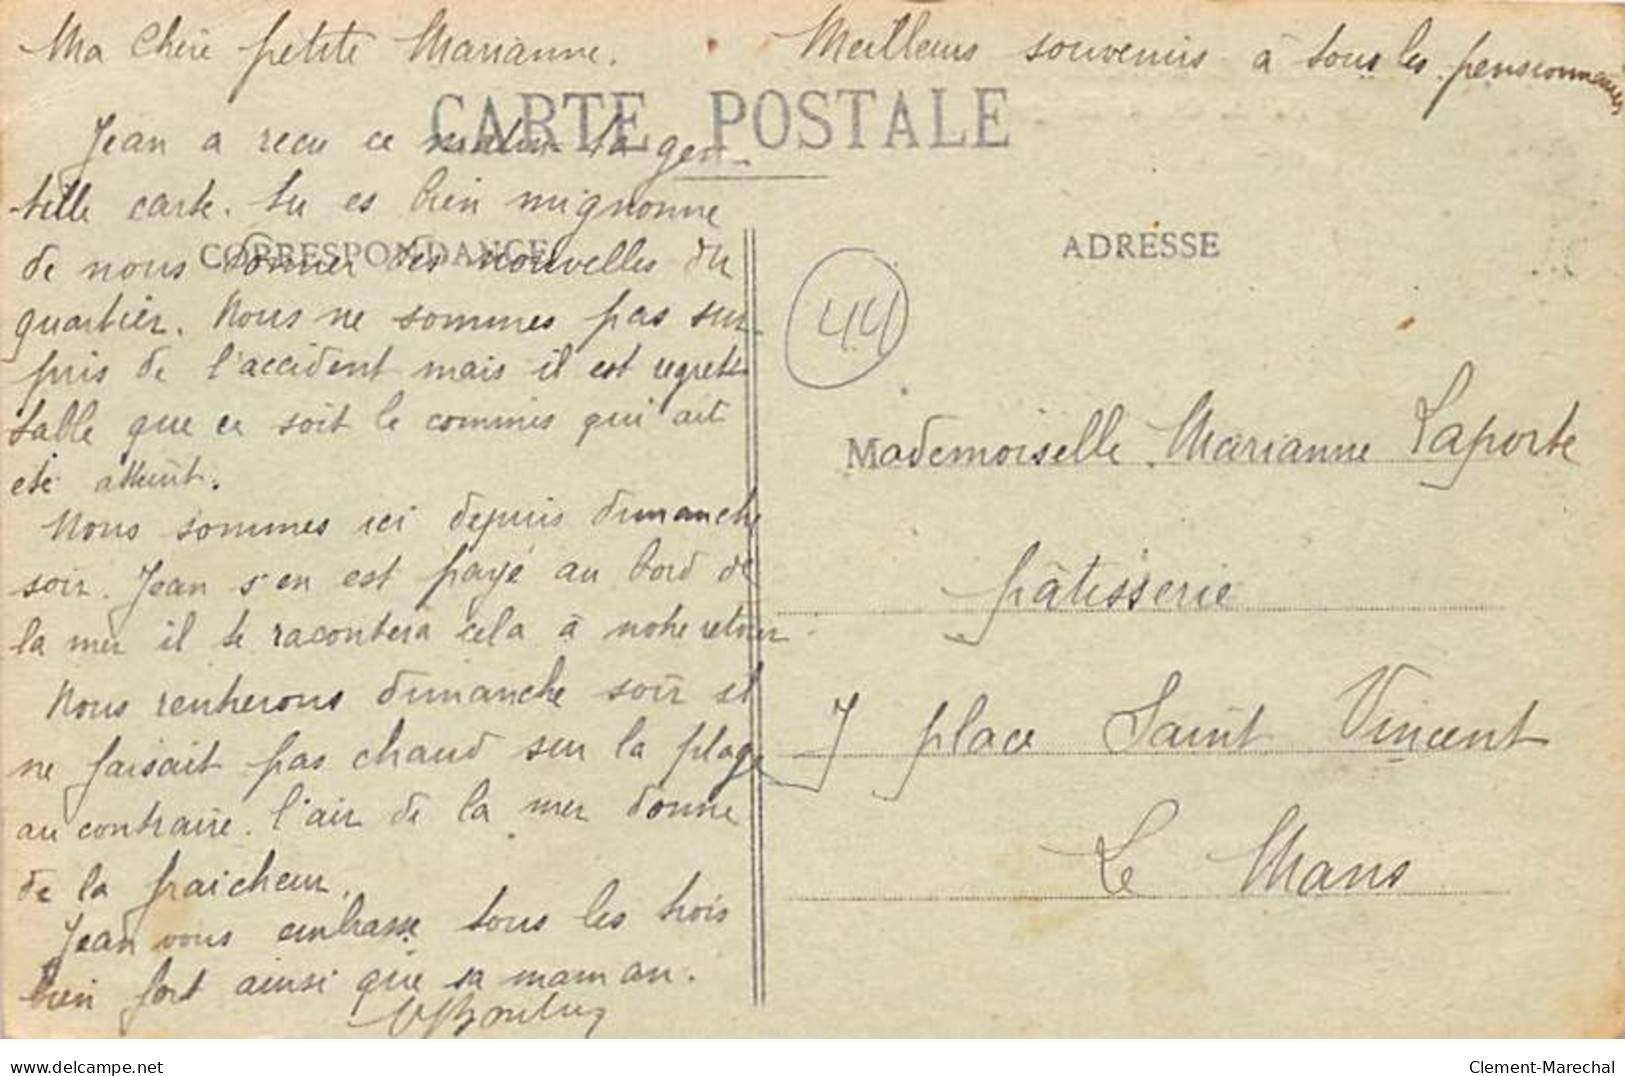 Ma Chère petite Marianne.
Meilleurs souvenirs à tous les pensionnaires
CARTE POSTALE
Jean a recu ce matin ta gen-
tille carte. tu es bien mignonne
CORRESPONDANCE
de nous donner des nouvelles du
quartier. Nous ne sommes pas sur-
pris de l'accident mais il est regret-
table que ce soit le commis qui ait
eté atteint.
Nous sommes ici depuis dimanche
soir. Jean s'en est payé au bord de
la mer il te racontera cela à notre retour.
Nous rentrerons dimanche soir il
ne faisait pas chaud sur la plage
au contraire. l'air de la mer donne
de la fraicheur.
Jean vous embrasse tous les trois
bien fort ainsi que sa maman.
ADRESSE
44
Mademoiselle Marianne Laporte
pâtisserie
7 place Saint Vincent
Le Mans
delcampe.net
Clement-Marechal